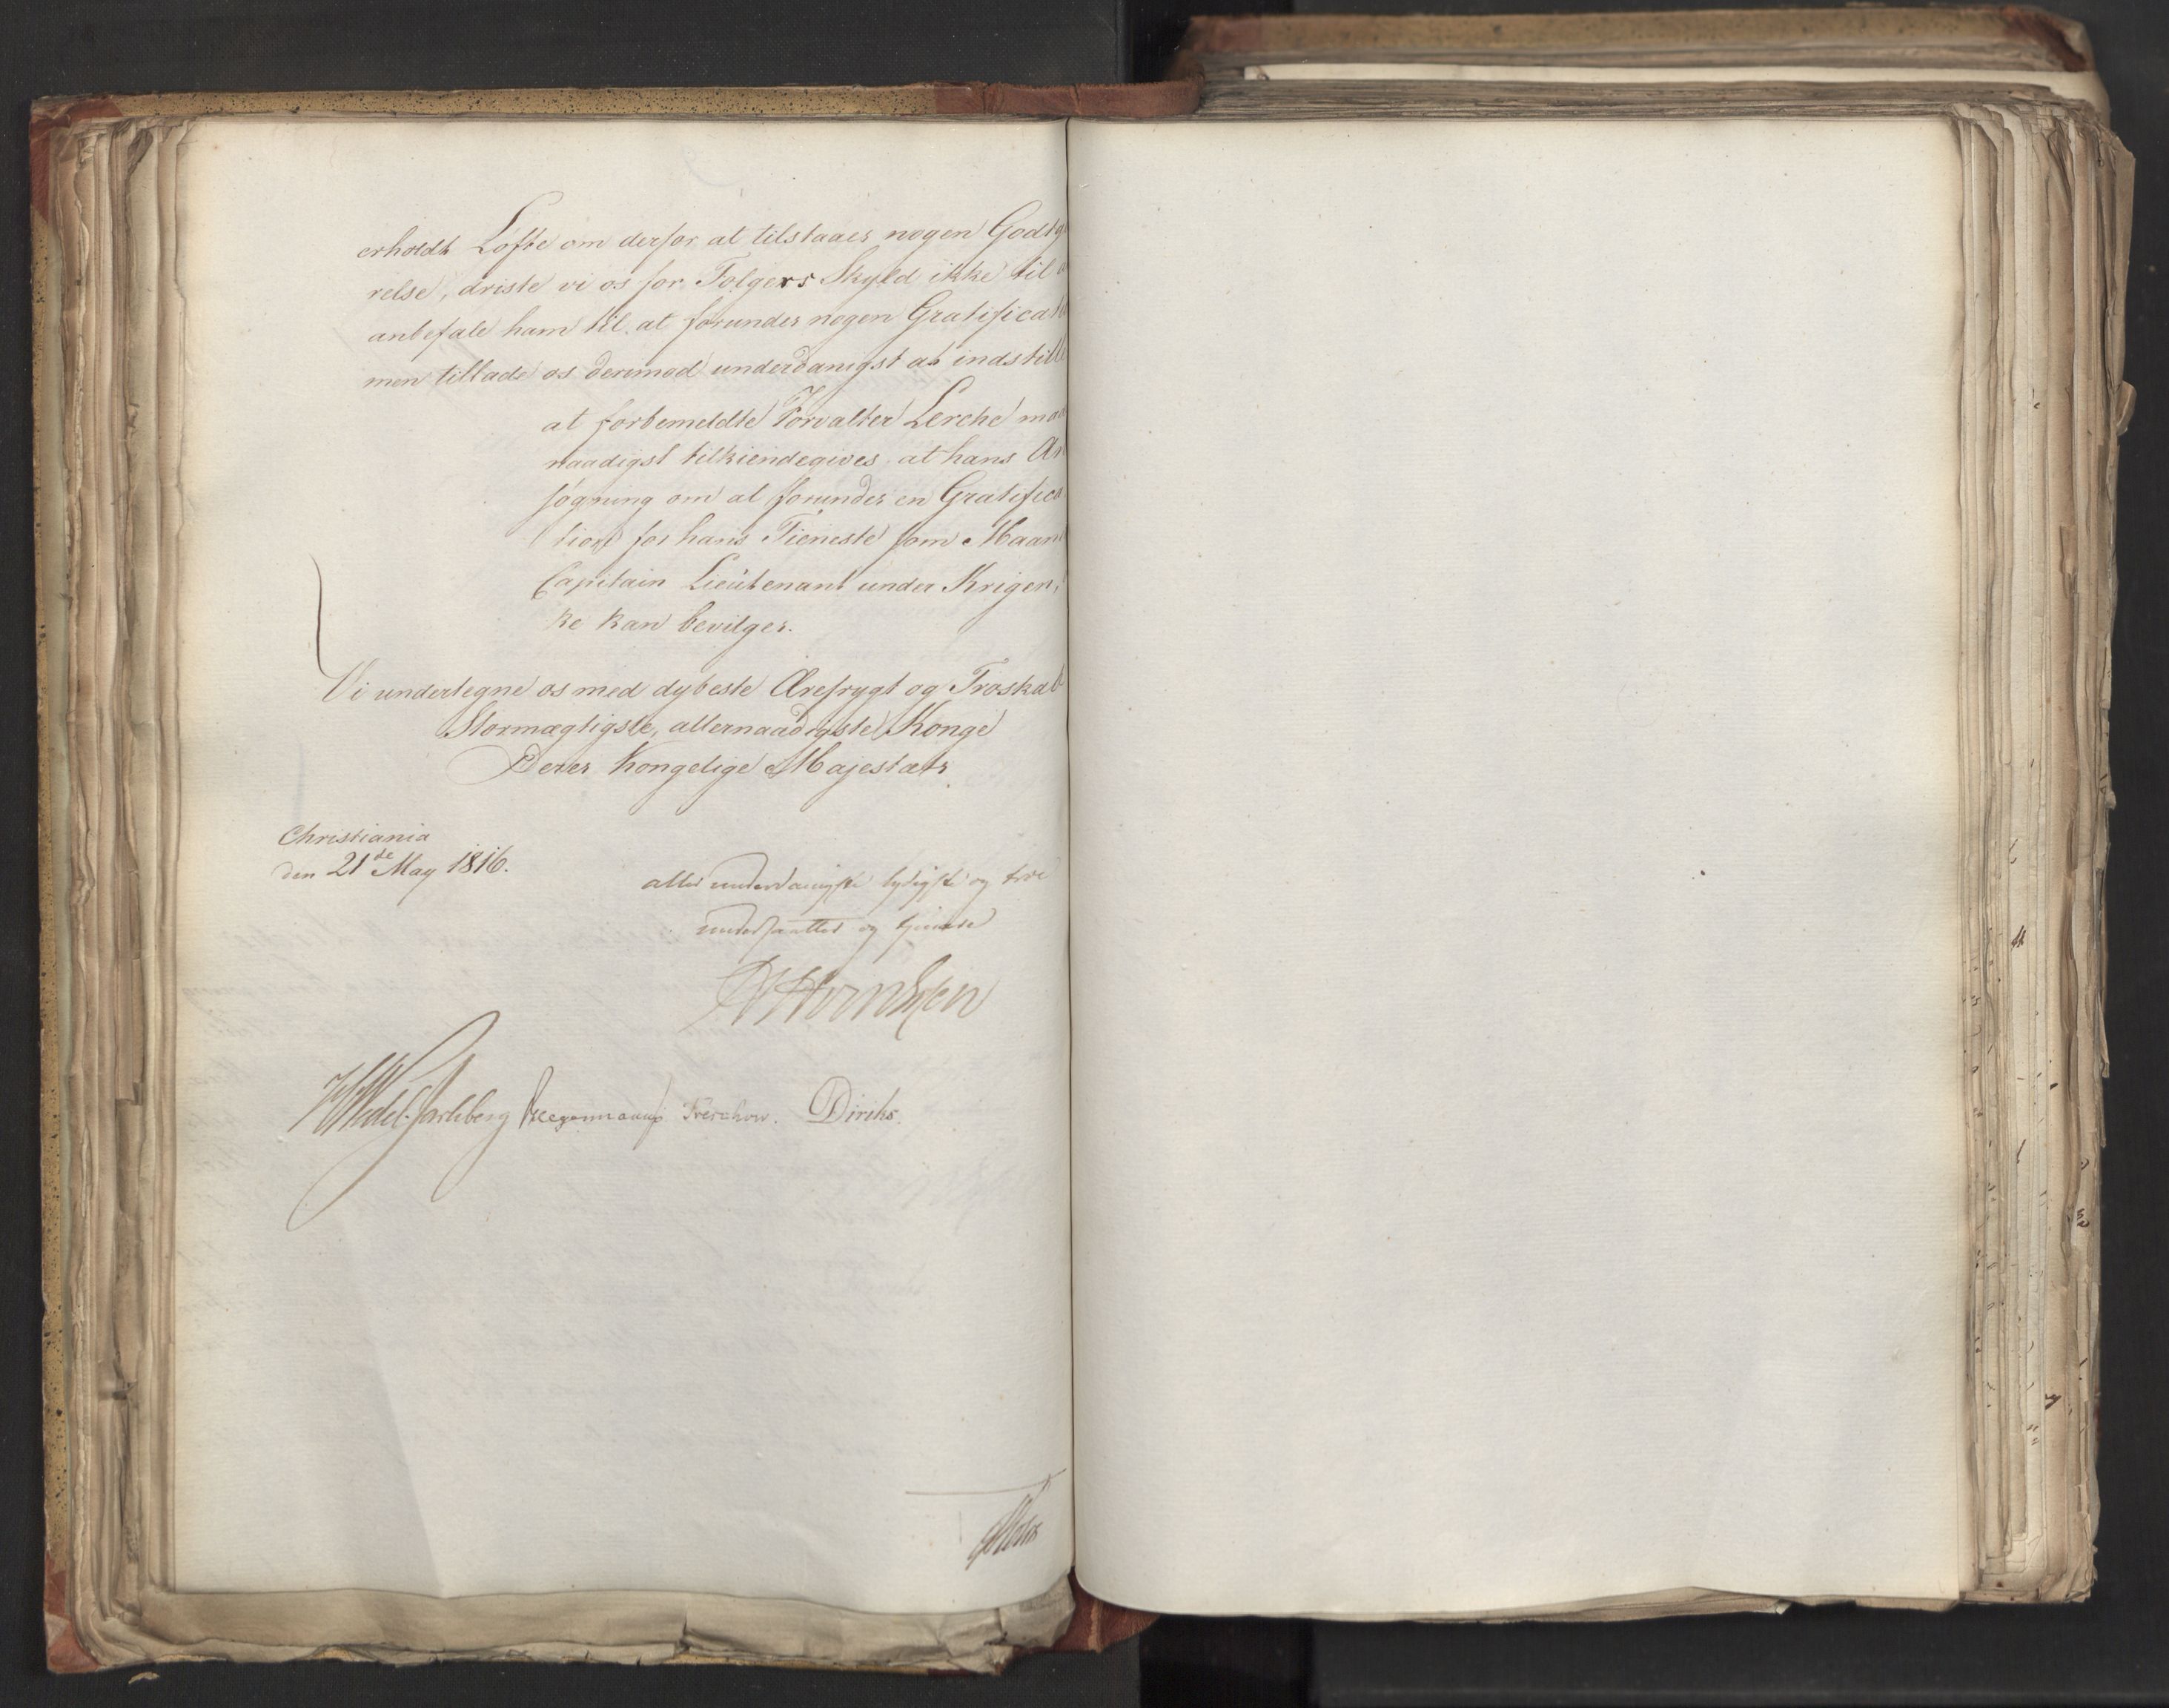 erholdt Løfte om derfor at tilstaaes nogen Godtg
relse, driste vi os for Følgers Skyld ikke til a
anbefale ham til at forundes nogen Gratificat
men tillade os derimod underdanigst at indstille
at forbemeldte Forvalter Lerche maa
naadigst tilkiendegives, at hans An
søgning om at forundes en Gratifica
tion for hans Tieneste som
Capitain Lieutenant under Krigen, i
ke kan bevilges.
Vi undertegne os med dybeste Ærefrygt og Troskab
Stormægtigste, allernaadigste Konge
Deres Kongelige Majestæts
Christiania
den 21de May 1816.
allerunderdanigste lydigste og troe
undersaatter og tjenere
Wedel-Jarlsberg Treschow. Diriks.